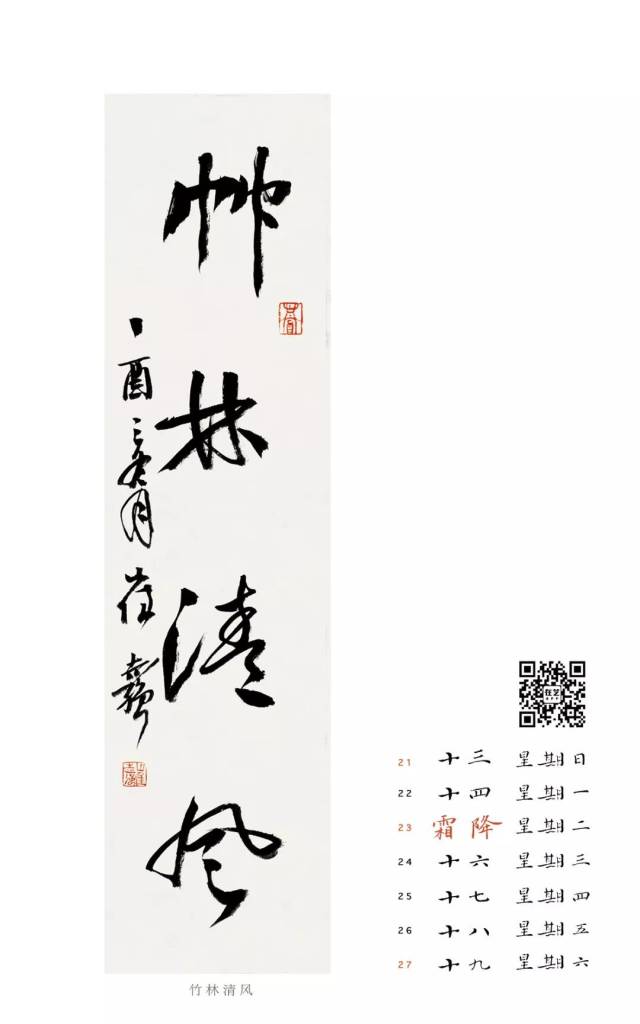 竹林清风
丁酉三月
崔
竹林清风
在艺
21 十三 星期日
22 十四 星期一
23 霜降 星期二
24 十六 星期三
25 十七 星期四
26 十八 星期五
27 十九 星期六